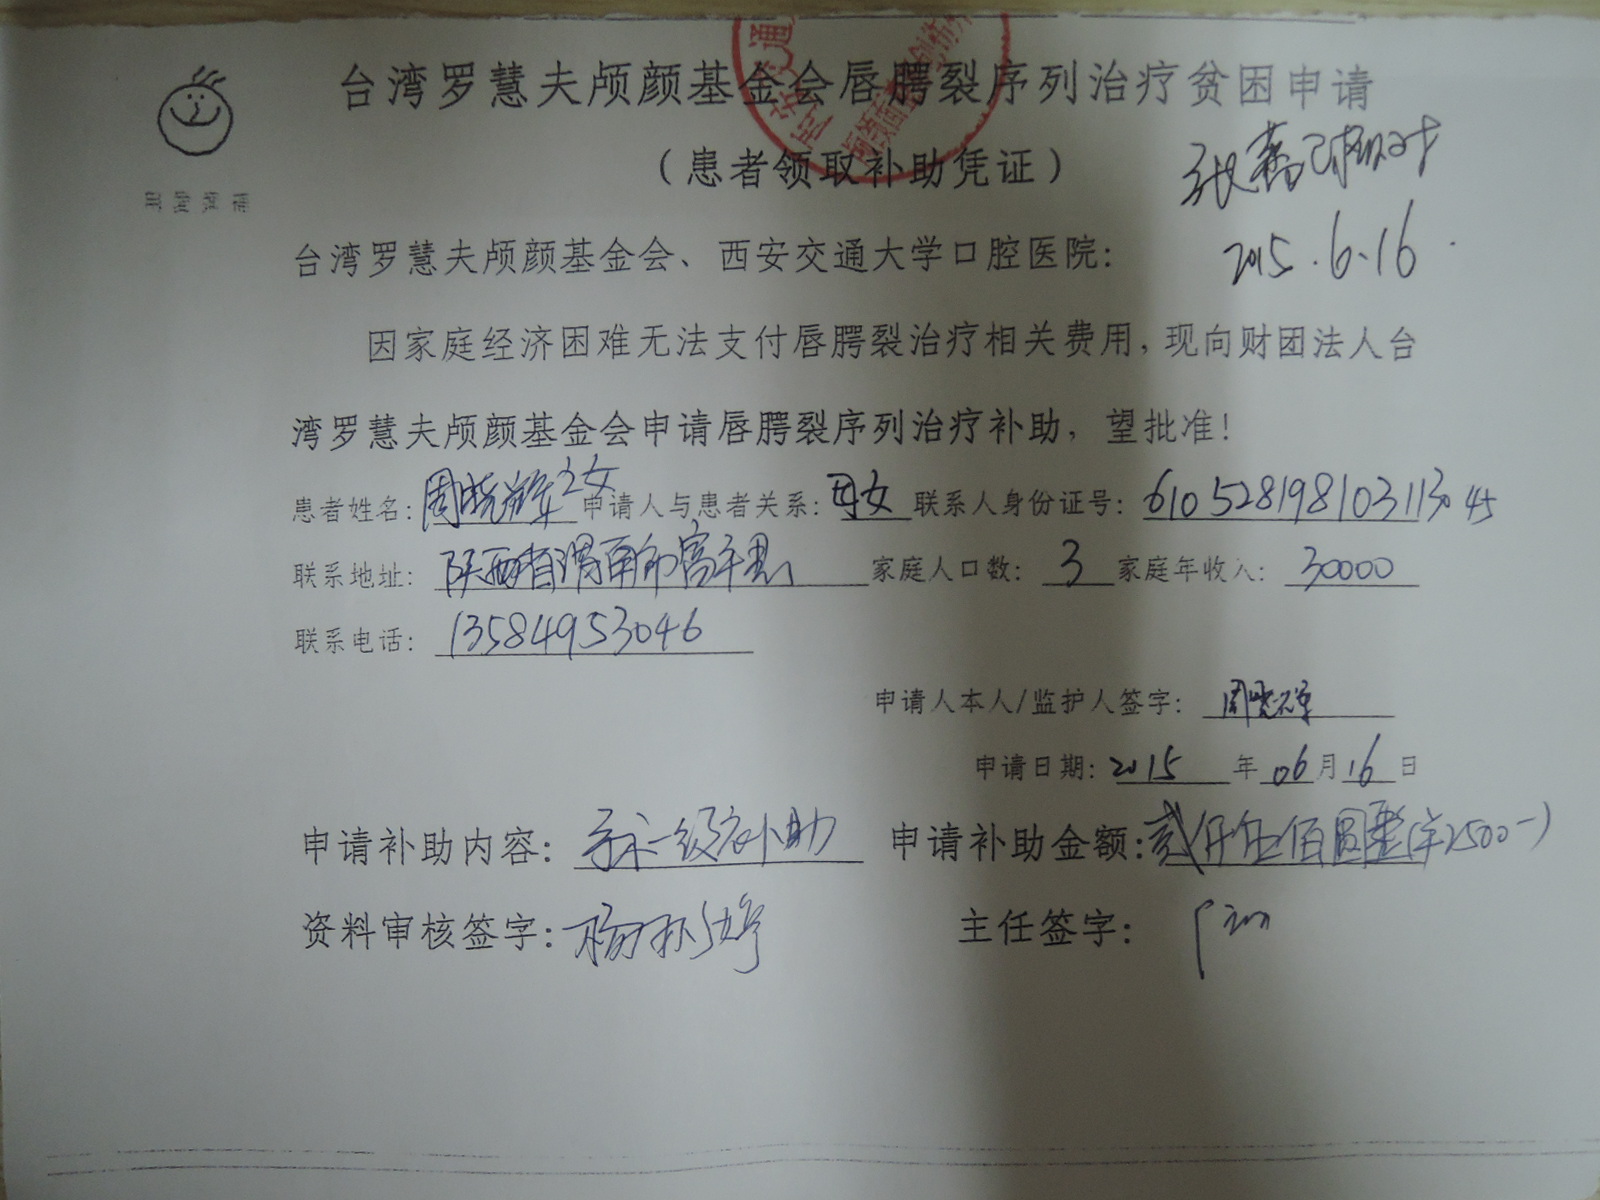 台湾罗慧夫颅颜基金会唇腭裂序列治疗贫困申请
(患者领取补助凭证)
张 已核对
2015.6.16
用爱弥补
台湾罗慧夫颅颜基金会、西安交通大学口腔医院:
因家庭经济困难无法支付唇腭裂治疗相关费用,现向财团法人台
湾罗慧夫颅颜基金会申请唇腭裂序列治疗补助,望批准!
患者姓名: 周晓 之女 申请人与患者关系: 母女 联系人身份证号:
联系地址: 陕西省渭南市富平县 家庭人口数: 3 家庭年收入: 30000
联系电话: 13584953046
申请人本人/监护人签字: 周晓
申请日期: 2015 年 06 月 16 日
申请补助内容: 手术一级 补助 申请补助金额: 贰仟伍佰圆整(¥2500-)
资料审核签字: 杨 婷 主任签字: